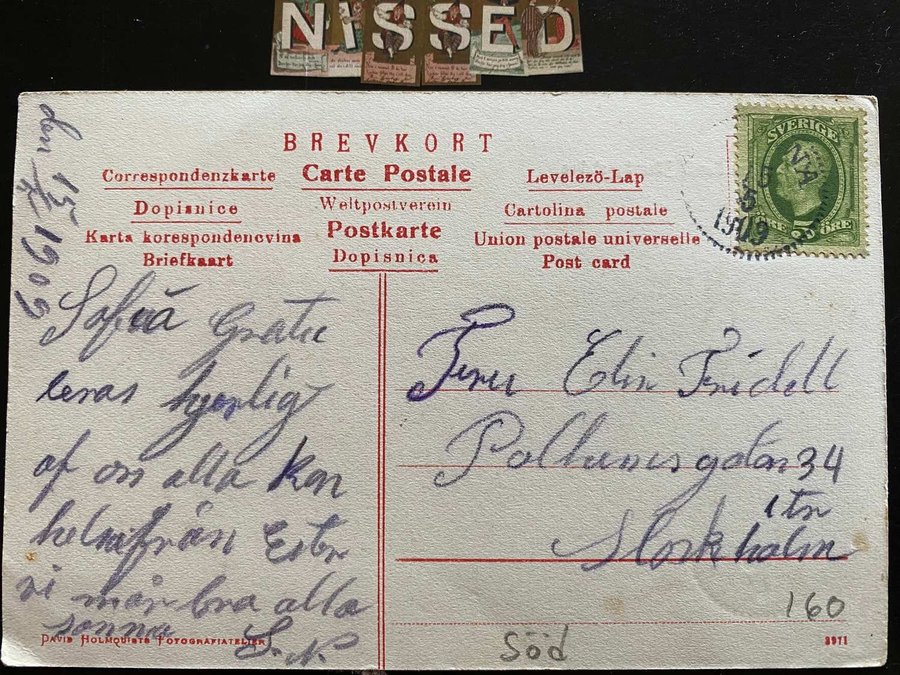 NISSED
BREVKORT
Correspondenzkarte Carte Postale Levelezö-Lap
Dopisnice Weltpostverein Cartolina postale
Karta korespondencyina Postkarte Union postale universelle
Briefkaart Dopisnica Post card
SVERIGE
5 ÖRE
NÄ
1909
den 15 1909
Sofia Gratu
leras hjerlig
af oss alla kan
helsa från Ester
vi mår bra alla
samma
S. N.
Fru Elin Fridell
Polhemsgatan 34
1 tr
Stockholm
160
Söd
DAVID HOLMQUISTS FOTOGRAFIATELIER
3971